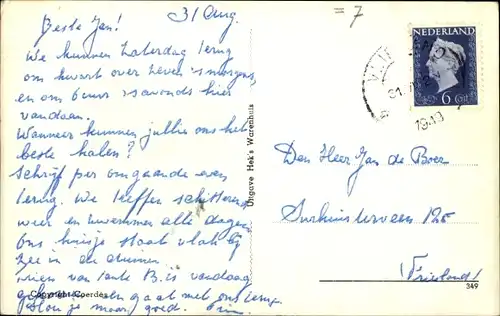 31 Aug.
Beste Jan!
We kunnen Zaterdag terug
om kwart over zeven 's morgens,
en om 6 uur 's avonds hier
vandaan.
Wanneer kunnen jullie ons het
beste halen?
Schrijf per omgaande even
terug. We treffen schitterend
weer en zwemmen alle dagen
Ons huisje staat vlak bij
zee in de duinen.
van tante B. is vandaag
gaat met ons terug.
goed.
Copyright Coerdes
Uitgave Hek's Warenhuis
= 7
NEDERLAND
6 ct
31
1949
Den Heer Jan de Boer
Surhuisterveen 125
(Friesland)
349